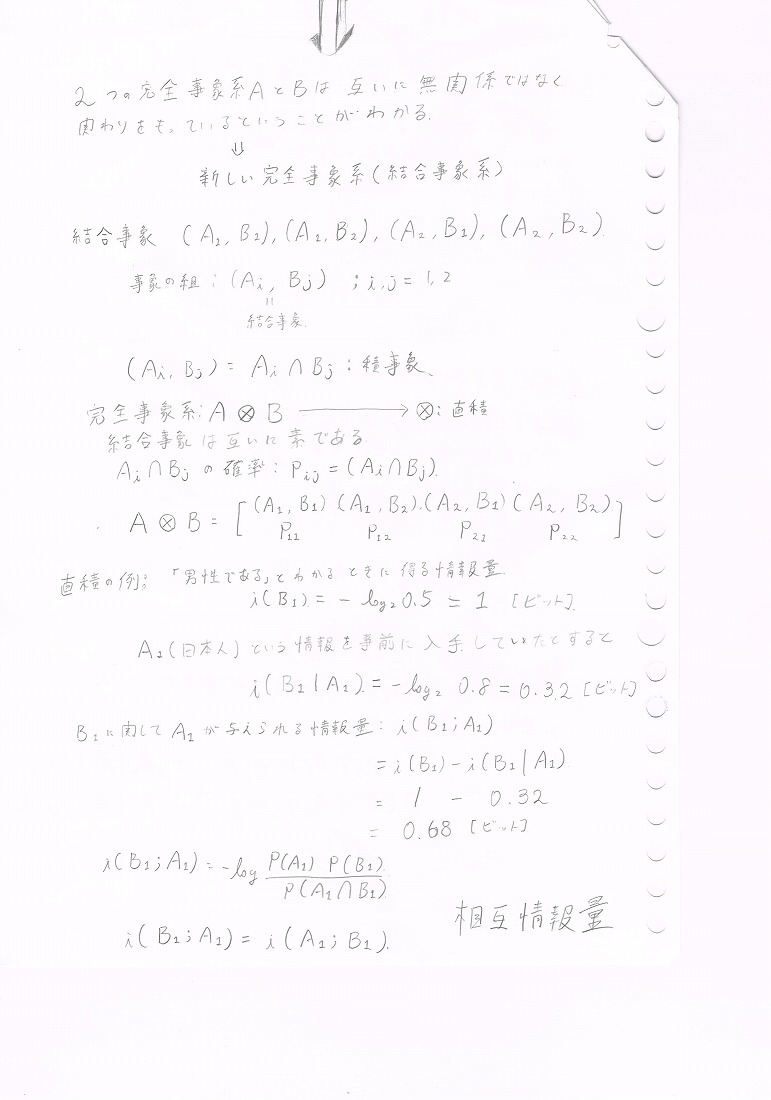 2つの完全事象系AとBは互いに無関係ではなく
関わりをもっているということがわかる.
⇓
新しい完全事象系(結合事象系)
結合事象 (A₁, B₁), (A₁, B₂), (A₂, B₁), (A₂, B₂).
事象の組 : (Ai, Bj) ; i,j = 1, 2
=
結合事象.
(Ai, Bj) = Ai ∩ Bj : 積事象、
完全事象系: A ⊗ B ―――→ ⊗: 直積
結合事象は互いに素である
Ai∩Bj の確率: Pij = (Ai∩Bj).
A ⊗ B = [ (A₁, B₁) (A₁, B₂).(A₂, B₁) (A₂, B₂) ]
P₁₁ P₁₂ P₂₁ P₂₂
直積の例; 「男性である」とわかるときに得る情報量
i(B₁) = - log₂0.5 = 1 [ビット].
A₁(日本人)という情報を事前に入手していたとすると
i(B₁|A₁) = -log₂ 0.8 = 0.32 [ビット]
B₁に関してA₁が与えられる情報量: i(B₁;A₁)
= i(B₁) - i(B₁|A₁)
= 1 - 0.32
= 0.68 [ビット]
i(B₁;A₁) = -log P(A₁) P(B₁) / P(A₁∩B₁)
相互情報量
i(B₁;A₁) = i(A₁;B₁).